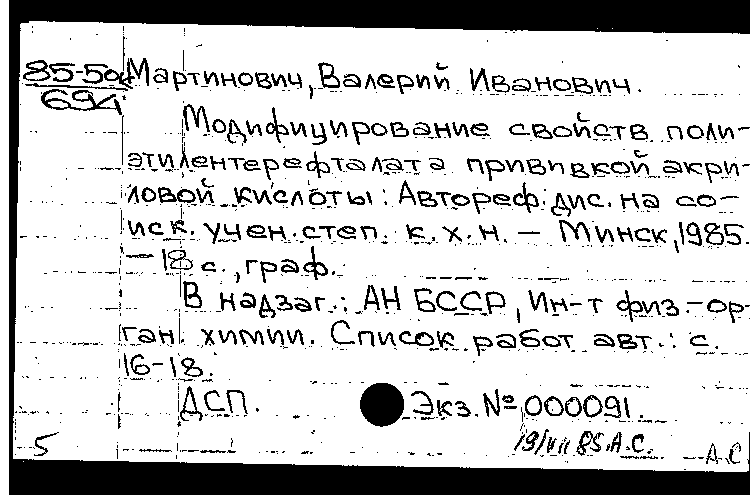 85-5од Мартинович, Валерий Иванович.
694
Модифицирование свойств поли-
этилентерефталата прививкой акри-
ловой кислоты: Автореф. дис. на со-
иск. учен. степ. к. х. н. — Минск, 1985.
— 18 с., граф.
В надзаг.: АН БССР, Ин-т физ.-ор-
ган. химии. Список работ авт.: с.
16-18.
ДСП. Экз. № 000091.
5 19/VII 85. А.С. — А.С.